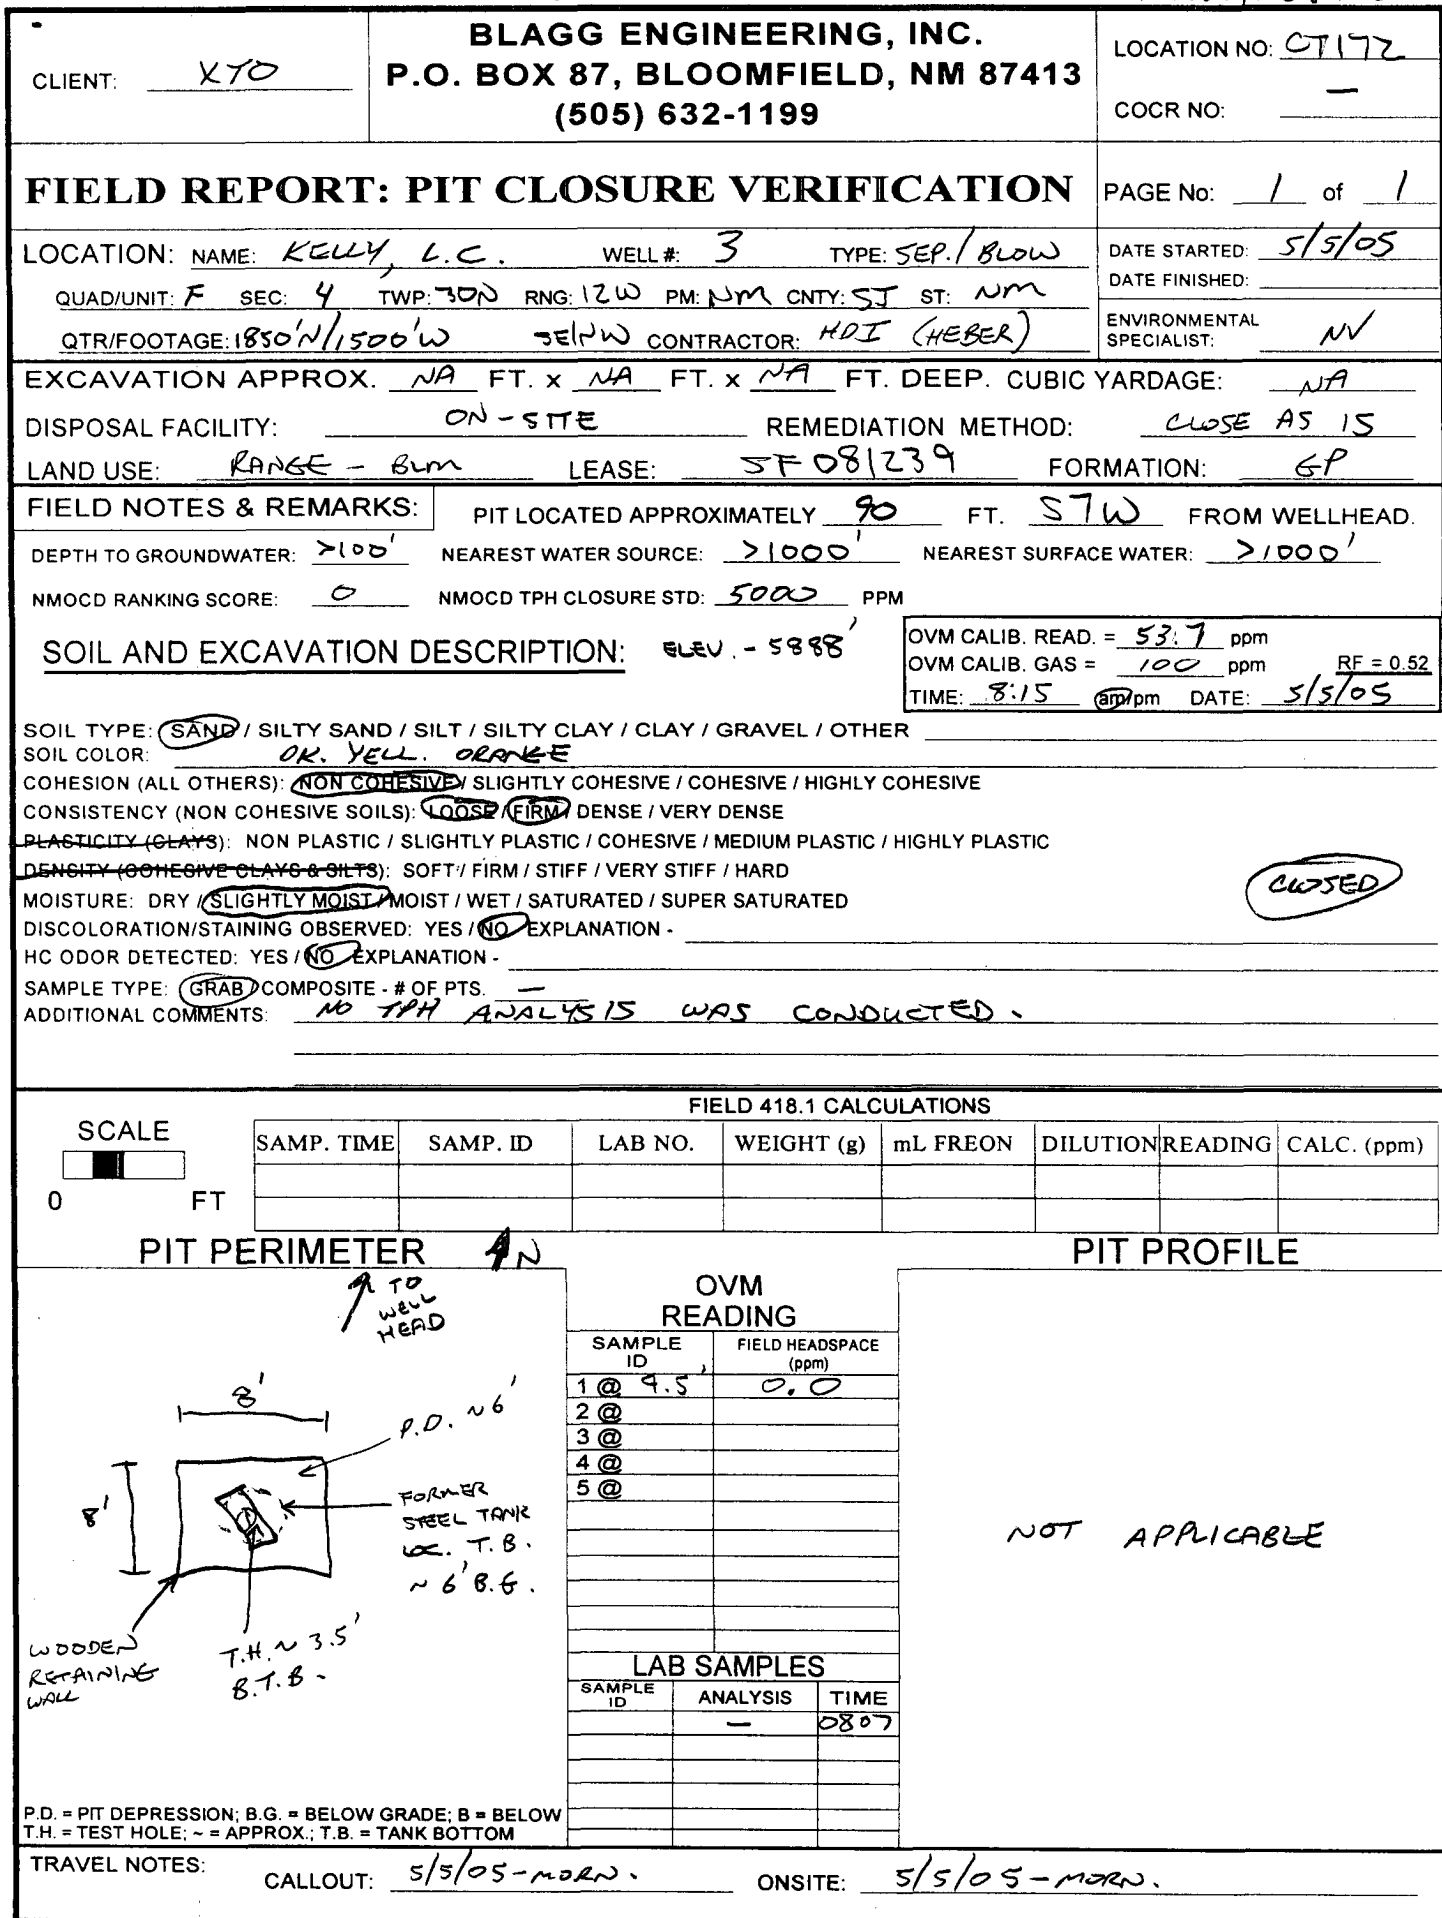 BLAGG ENGINEERING, INC.
P.O. BOX 87, BLOOMFIELD, NM 87413
(505) 632-1199
CLIENT: XTO
LOCATION NO: CT172
COCR NO: —
FIELD REPORT: PIT CLOSURE VERIFICATION
PAGE No: 1 of 1
LOCATION: NAME: KELLY, L.C. WELL #: 3 TYPE: SEP./BLOW
DATE STARTED: 5/5/05
DATE FINISHED:
QUAD/UNIT: F SEC: 4 TWP: 30N RNG: 12W PM: NM CNTY: SJ ST: NM
QTR/FOOTAGE: 1850'N/1500'W SE/NW CONTRACTOR: HDI (HEBER)
ENVIRONMENTAL SPECIALIST: NV
EXCAVATION APPROX. NA FT. x NA FT. x NA FT. DEEP. CUBIC YARDAGE: NA
DISPOSAL FACILITY: ON-SITE REMEDIATION METHOD: CLOSE AS IS
LAND USE: RANGE - BLM LEASE: SF 081239 FORMATION: GP
FIELD NOTES & REMARKS: PIT LOCATED APPROXIMATELY 90 FT. S7W FROM WELLHEAD.
DEPTH TO GROUNDWATER: >100' NEAREST WATER SOURCE: >1000' NEAREST SURFACE WATER: >1000'
NMOCD RANKING SCORE: 0 NMOCD TPH CLOSURE STD: 5000 PPM
SOIL AND EXCAVATION DESCRIPTION: ELEV. - 5888'
OVM CALIB. READ. = 53.7 ppm
OVM CALIB. GAS = 100 ppm RF = 0.52
TIME: 8:15 am/pm DATE: 5/5/05
SOIL TYPE: SAND / SILTY SAND / SILT / SILTY CLAY / CLAY / GRAVEL / OTHER
SOIL COLOR: DK. YELL. ORANGE
COHESION (ALL OTHERS): NON COHESIVE / SLIGHTLY COHESIVE / COHESIVE / HIGHLY COHESIVE
CONSISTENCY (NON COHESIVE SOILS): LOOSE / FIRM / DENSE / VERY DENSE
PLASTICITY (CLAYS): NON PLASTIC / SLIGHTLY PLASTIC / COHESIVE / MEDIUM PLASTIC / HIGHLY PLASTIC
DENSITY (COHESIVE CLAYS & SILTS): SOFT / FIRM / STIFF / VERY STIFF / HARD
MOISTURE: DRY / SLIGHTLY MOIST / MOIST / WET / SATURATED / SUPER SATURATED
CLOSED
DISCOLORATION/STAINING OBSERVED: YES / NO EXPLANATION -
HC ODOR DETECTED: YES / NO EXPLANATION -
SAMPLE TYPE: GRAB / COMPOSITE - # OF PTS. —
ADDITIONAL COMMENTS: NO TPH ANALYSIS WAS CONDUCTED.
FIELD 418.1 CALCULATIONS
SCALE
0 FT
SAMP. TIME SAMP. ID LAB NO. WEIGHT (g) mL FREON DILUTION READING CALC. (ppm)
PIT PERIMETER N
TO WELL HEAD
8'
P.D. ~6'
8'
FORMER STEEL TANK LOC. T.B. ~ 6' B.G.
WOODEN RETAINING WALL
T.H. ~ 3.5' B.T.B.
P.D. = PIT DEPRESSION; B.G. = BELOW GRADE; B = BELOW
T.H. = TEST HOLE; ~ = APPROX.; T.B. = TANK BOTTOM
OVM READING
SAMPLE ID FIELD HEADSPACE (ppm)
1 @ 9.5' 0.0
2 @
3 @
4 @
5 @
LAB SAMPLES
SAMPLE ID ANALYSIS TIME
— 0807
PIT PROFILE
NOT APPLICABLE
TRAVEL NOTES: CALLOUT: 5/5/05 - MORN. ONSITE: 5/5/05 - MORN.